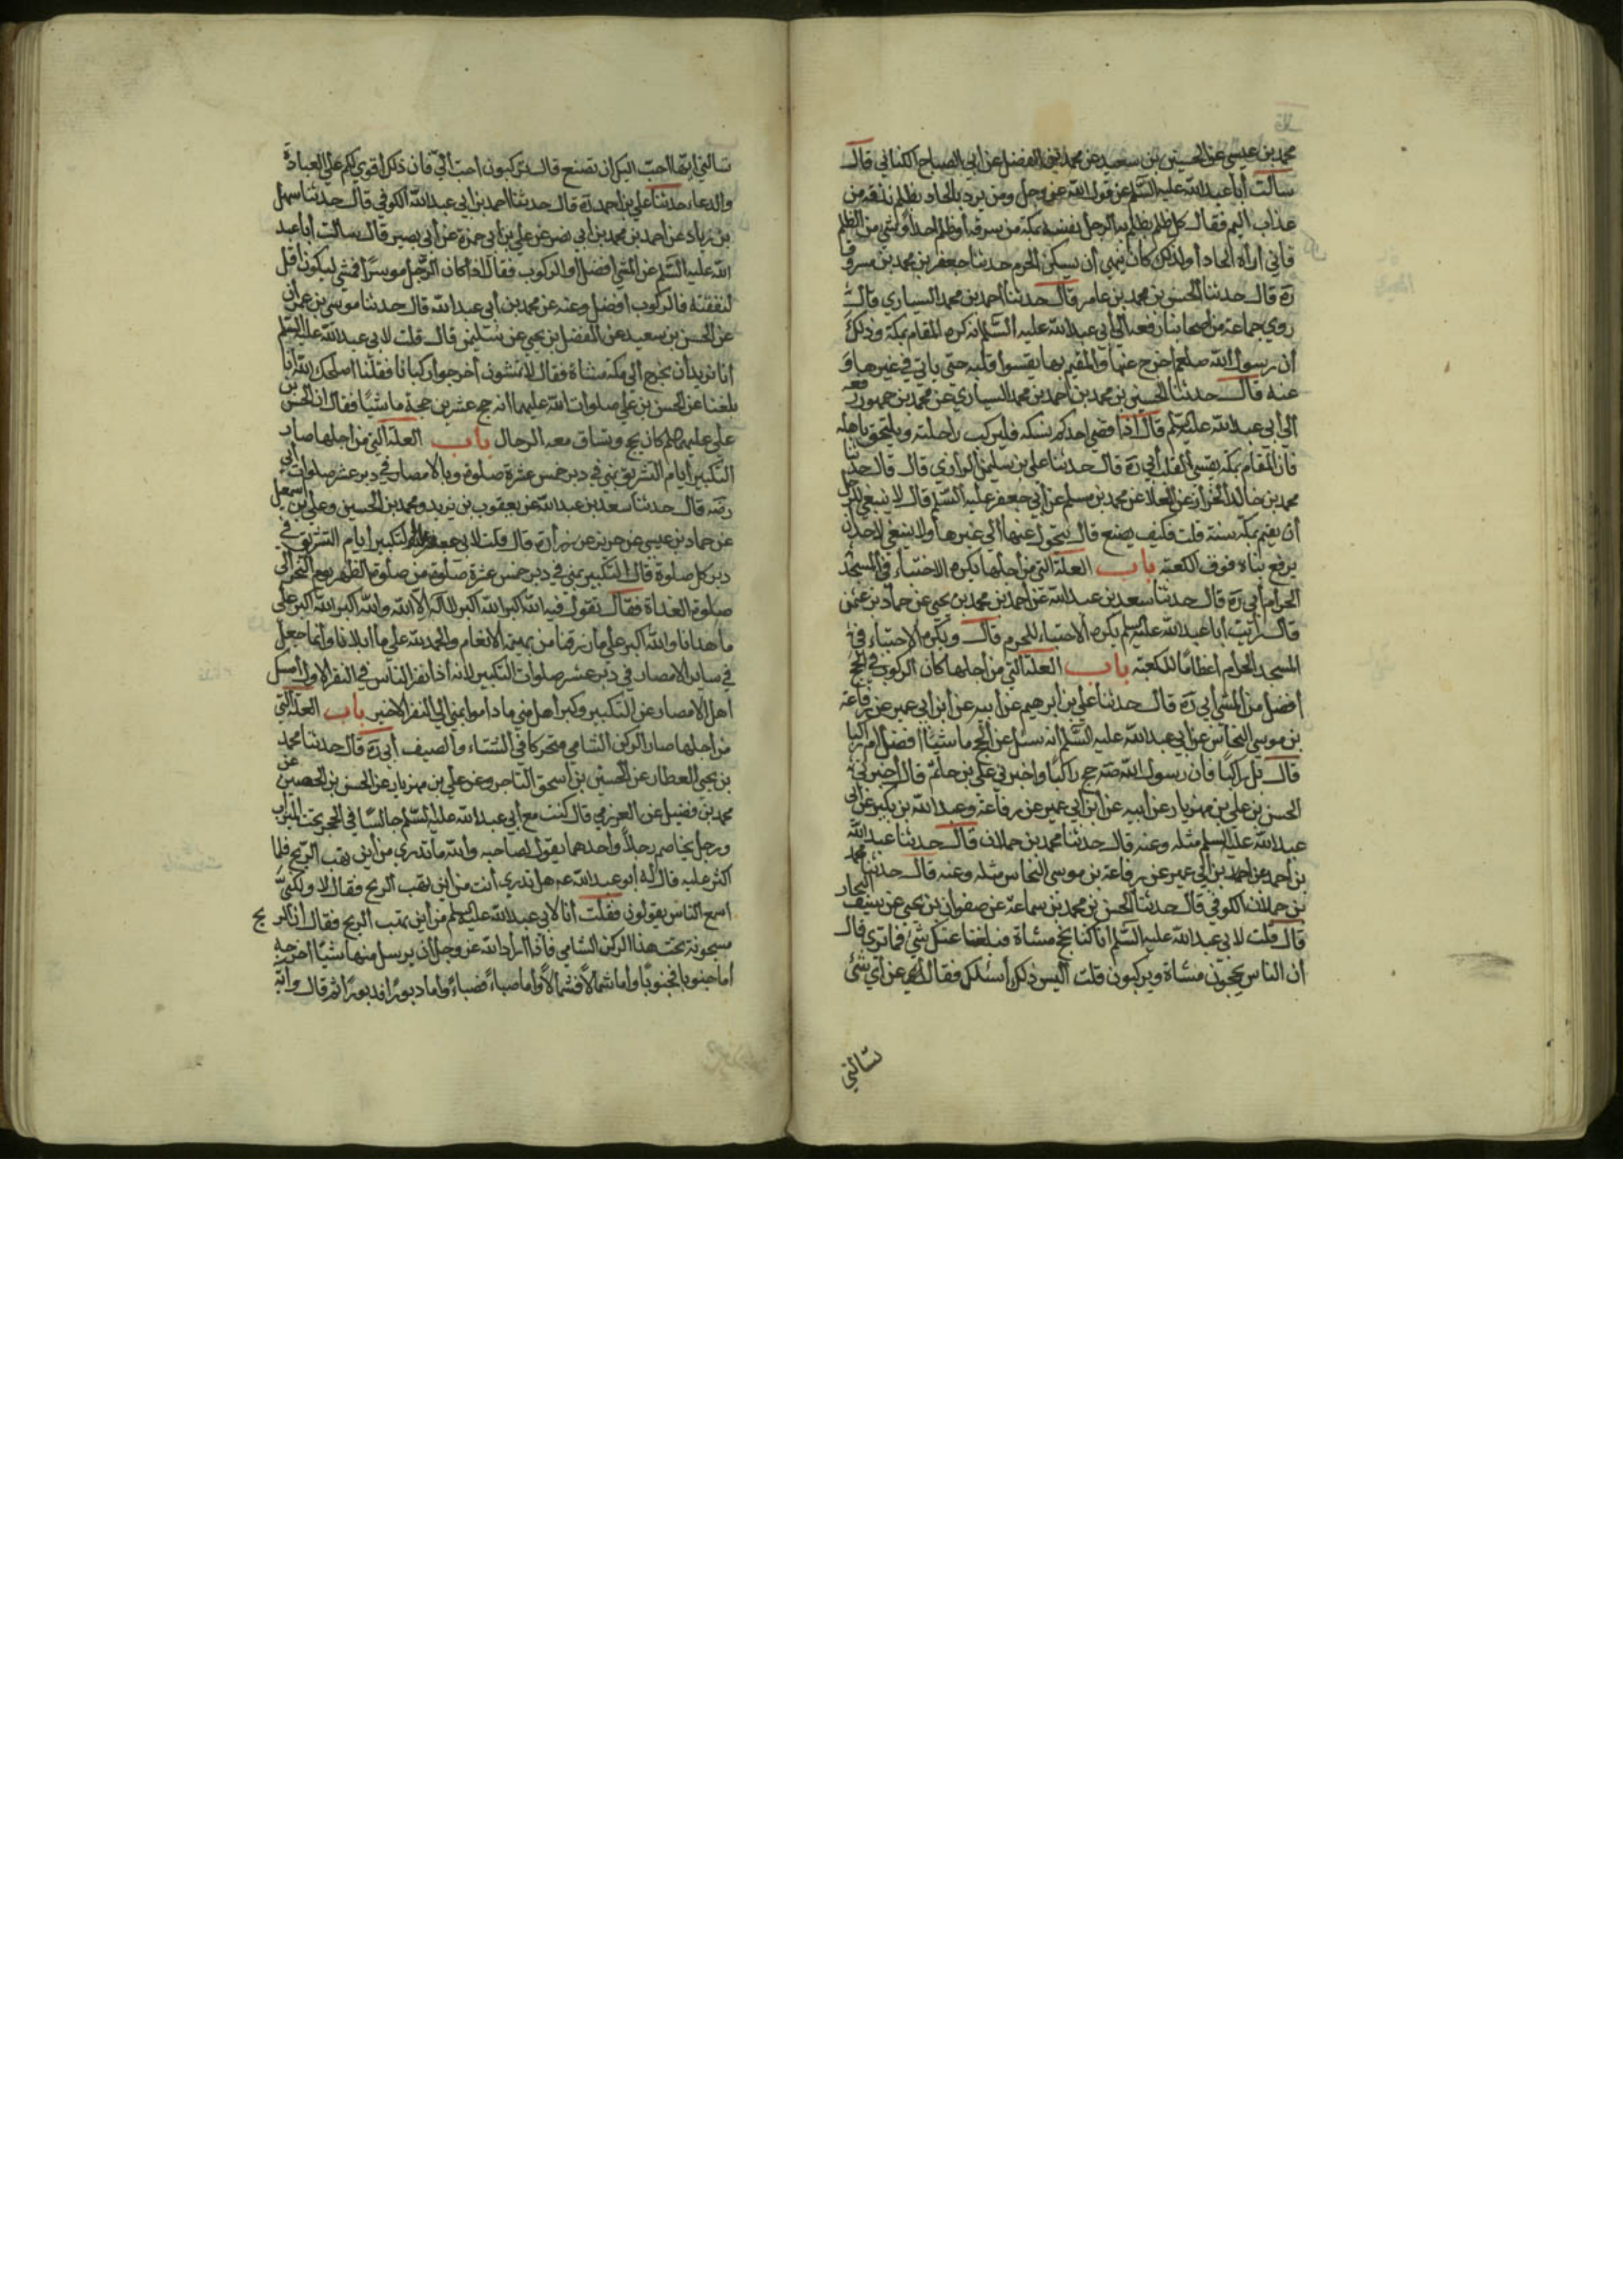 محمد بن عيسى عن الحسين بن سعيد عن محمد بن الفضيل عن أبي الصباح الكناني قال
سألت أبا عبد الله عليه السّلم عن قول الله عز وجل ومن يرد فيه بالحاد بظلم نذقه من
عذاب اليم فقال كل ظلم يظلم به الرجل نفسه بمكة من سرقة أو ظلم احد أو شئ من الظلم
فاني أراه إلحادا ولذلك كان ينهى أن يسكن الحرم حدثنا جعفر بن محمد بن مسرور
ره قال حدثنا الحسين بن محمد بن عامر قال حدثنا احمد بن محمد السياري قال
روى جماعة من اصحابنا رفعوه الى أبي عبد الله عليه السّلم انه كره المقام بمكة وذلك
أن رسول الله صلعم اخرج عنها والمقيم بها يقسوا قلبه حتى ياتي في غيرها و
عنه قال حدثنا الحسين بن محمد بن احمد بن محمد السياري عن محمد بن جمهور رفعه
الى أبي عبد الله عليه السلم قال اذا قضى احدكم نسكه فليركب راحلته وليلحق باهله
فان المقام بمكة يقسي القلب أبي ره قال حدثنا علي بن سليمن الرازي قال حدثنا
محمد بن خالد الخزاز عن العلا عن محمد بن مسلم عن أبي جعفر عليه السّلم قال لا ينبغي للرجل
أن يقيم بمكة سنة قلت فكيف يصنع قال يتحول عنها الى غيرها ولا ينبغي لاحد ان
يرفع بناه فوق الكعبة باب العلة التي من أجلها يكره الاحتباء في المسجد
الحرام أبي ره قال حدثنا سعد بن عبد الله عن أحمد بن محمد بن يحيى عن حماد بن عثمن
قال رأيت أبا عبد الله عليه السلم يكره الاحتباء للمحرم قال ويكره الاحتباء في
المسجد الحرام اعظاما للكعبة باب العلة التي من أجلها كان الركوب في الحج
أفضل من المشي أبي ره قال حدثنا علي بن ابرهيم عن أبيه عن ابن أبي عمير عن رفاعة
بن موسى النخاس عن أبي عبد الله عليه السّلم انه سئل عن الحج ماشيًا افضل ام راكبا
قال بل راكبًا فان رسول الله صه حج راكبًا واخبرني علي بن حاتم قال أخبرني
الحسن بن علي بن مهزيار عن ابيه عن ابن أبي عمير عن رفاعة وعبد الله بن بكير عن أبي
عبد الله عليه السلم مثله وعنه قال حدثنا محمد بن حملان قال حدثنا عبد الله
بن أحمد عن احمد بن أبي عمير عن رفاعة بن موسى النخاس مثله وعنه قال حدثنا محمد
بن حملان الكوفي قال حدثنا الحسن بن محمد بن سماعة عن صفوان بن يحيى عن سيف التجار
قال قلت لابي عبد الله عليه السّلم أنا كنا نحج مشاة فبلغنا عنك شئ فما ترى قال
أن الناس يحجون مشاة ويركبون قلت أليس ذلك أسئلك فقال عن أي شئ
سألتني
سألتني ايها احبّ اليك ان نصنع قال تركبون احب الي فان ذلك أقوى لكم على العبادة
والدعاء حدثنا علي بن احمد ره قال حدثنا احمد بن ابي عبد الله الكوفي قال حدثنا سهل
بن زياد عن احمد بن محمد بن أبي نصر عن علي بن أبي حمزة عن أبي بصير قال سألت أبا عبد
الله عليه السّلم عن المشي أفضل او الركوب فقال اذا كان الرّجل موسرًا فمشى ليكون أقل
لنفقته فالركوب أفضل وعنه عن محمد بن أبي عبد الله قال حدثنا موسى بن عمران
عن الحسن بن سعيد عن الفضل بن يحيى عن سليمن قال قلت لابي عبد الله عليه السلم
أنا نريد أن نخرج الى مكة مشاة فقال لا تمشون أخرجوا ركبانا فقلنا أصلحك الله أنا
بلغنا عن الحسن بن علي صلوات الله عليهما انه حج عشرين حجة ماشيًا فقال ان الحسن بن
علي عليهما السلم كان يحج وتساق معه الرحال باب العلة التي من اجلها صار
التكبير أيام التشريق بمنى في دبر خمس عشرة صلوة وبالامصار في دبر عشر صلوات أبي
رضه قال حدثنا سعد بن عبد الله عن يعقوب بن يزيد ومحمد بن الحسين وعلي بن اسمعيل
عن حماد بن عيسى عن حريز عن زرارة قال قلت لابي جعفر التكبير أيام التشريق في
دبر كل صلوة قال التكبير بمنى في دبر خمس عشرة صلوة من صلوة الظهر يوم النحر الى
صلوة الغداة فقال تقول فيه الله اكبر الله اكبر لا اله الا الله والله اكبر الله اكبر على
ما هدانا والله اكبر على ما رزقنا من بهيمة الانعام والحمد لله على ما أبلانا وانما جعل
في ساير الامصار في دبر عشر صلوات التكبير لانه اذا نفر الناس في النفر الاول أمسك
اهل الامصار عن التكبير وكبر أهل منى ما داموا بمنى الى النفر الاخير باب العلة التي
من اجلها صار الركن الشامي متحركا في الشتاء والصيف أبي ره قال حدثنا محمد
بن يحيى العطار عن الحسين بن اسحق التاجر وعن علي بن مهزيار عن الحسن بن الحصين عن
محمد بن فضيل عن العرزمي قال كنت مع أبي عبد الله عليه السّلم جالسًا في الحجر تحت الميزاب
ورجل يخاصم رجلاً واحدهما يقول لصاحبه والله ما تدري من أين تهب الريح فلما
اكثر عليه قال له أبو عبد الله عه هل تدري أنت من اين تهب الريح فقال لا ولكني
اسمع الناس يقولون فقلت أنا لابي عبد الله عليه السلم من أين تهب الريح فقال ان الريح
مسجونة تحت هذا الركن الشامي فاذا اراد الله عز وجل أن يرسل منها شيئًا اخرجه
اما جنوبا فجنوبًا واما شمالاً فشمالاً واما صباءً فصباءً واما دبورًا فدبورًا ثم قال وآية